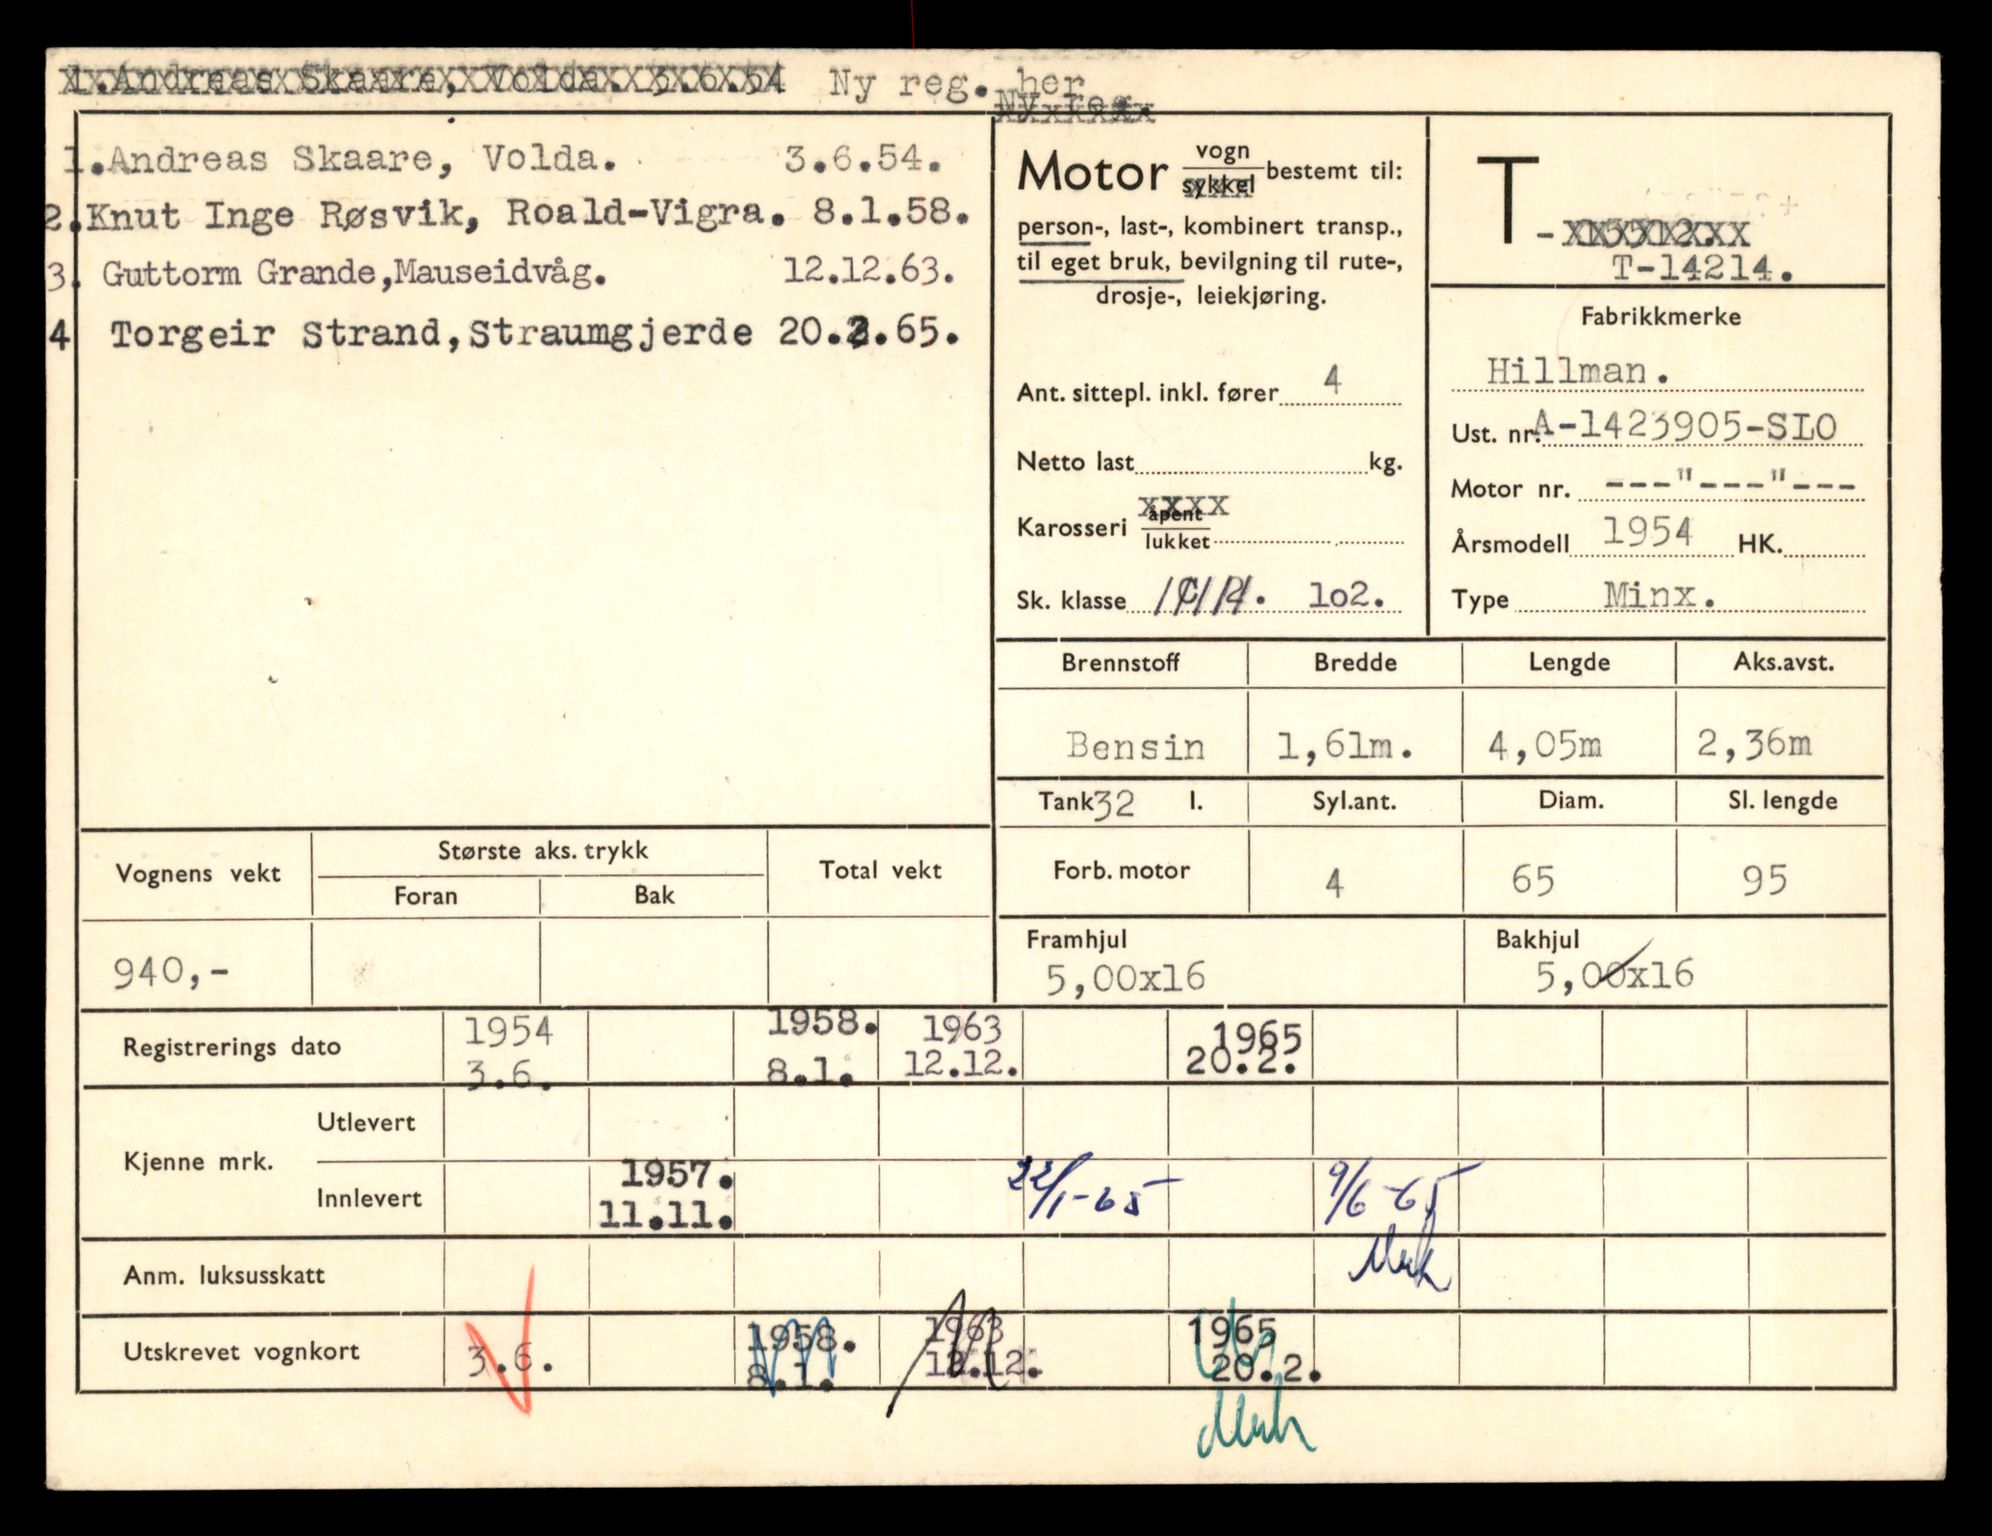 1.Andreas Skaare, Volda. 3.6.54 Ny reg. her
Ny reg.
1.Andreas Skaare, Volda. 3.6.54.
2.Knut Inge Røsvik, Roald-Vigra. 8.1.58.
3. Guttorm Grande,Mauseidvåg. 12.12.63.
4 Torgeir Strand,Straumgjerde 20.2.65.
Motor vogn
sykkel bestemt til:
person-, last-, kombinert transp.,
til eget bruk, bevilgning til rute-,
drosje-, leiekjøring.
Ant. sittepl. inkl. fører 4
Netto last kg.
Karosseri åpent
lukket
Sk. klasse lo2.
T-
T-14214.
Fabrikkmerke
Hillman.
Ust. nr. A-1423905-SLO
Motor nr. ---"---"---
Årsmodell 1954 HK.
Type Minx.
Brennstoff Bredde Lengde Aks.avst.
Bensin 1,61m. 4,05m 2,36m
Tank 32 l. Syl.ant. Diam. Sl. lengde
Forb. motor 4 65 95
Framhjul Bakhjul
5,00x16 5,00x16
Vognens vekt Største aks. trykk Total vekt
Foran Bak
940,-
Registrerings dato 1954 1958. 1963 1965
3.6. 8.1. 12.12. 20.2.
Kjenne mrk. Utlevert
Innlevert 1957. 22/1-65 9/6-65
11.11.
Anm. luksusskatt
Utskrevet vognkort 3.6. 1958. 1963 1965
8.1. 12.12. 20.2.